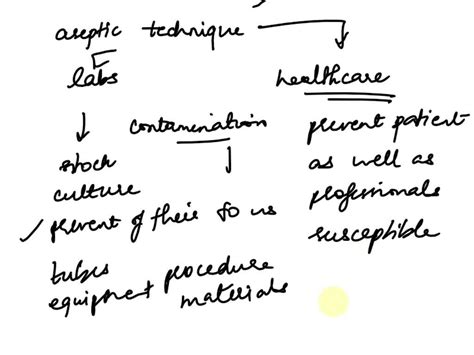 aseptic technique
labs
healthcare
contamination
stock
culture
prevent of their to us
tubes procedure
equipment materials
prevent patient
as well as
professionals
susceptible